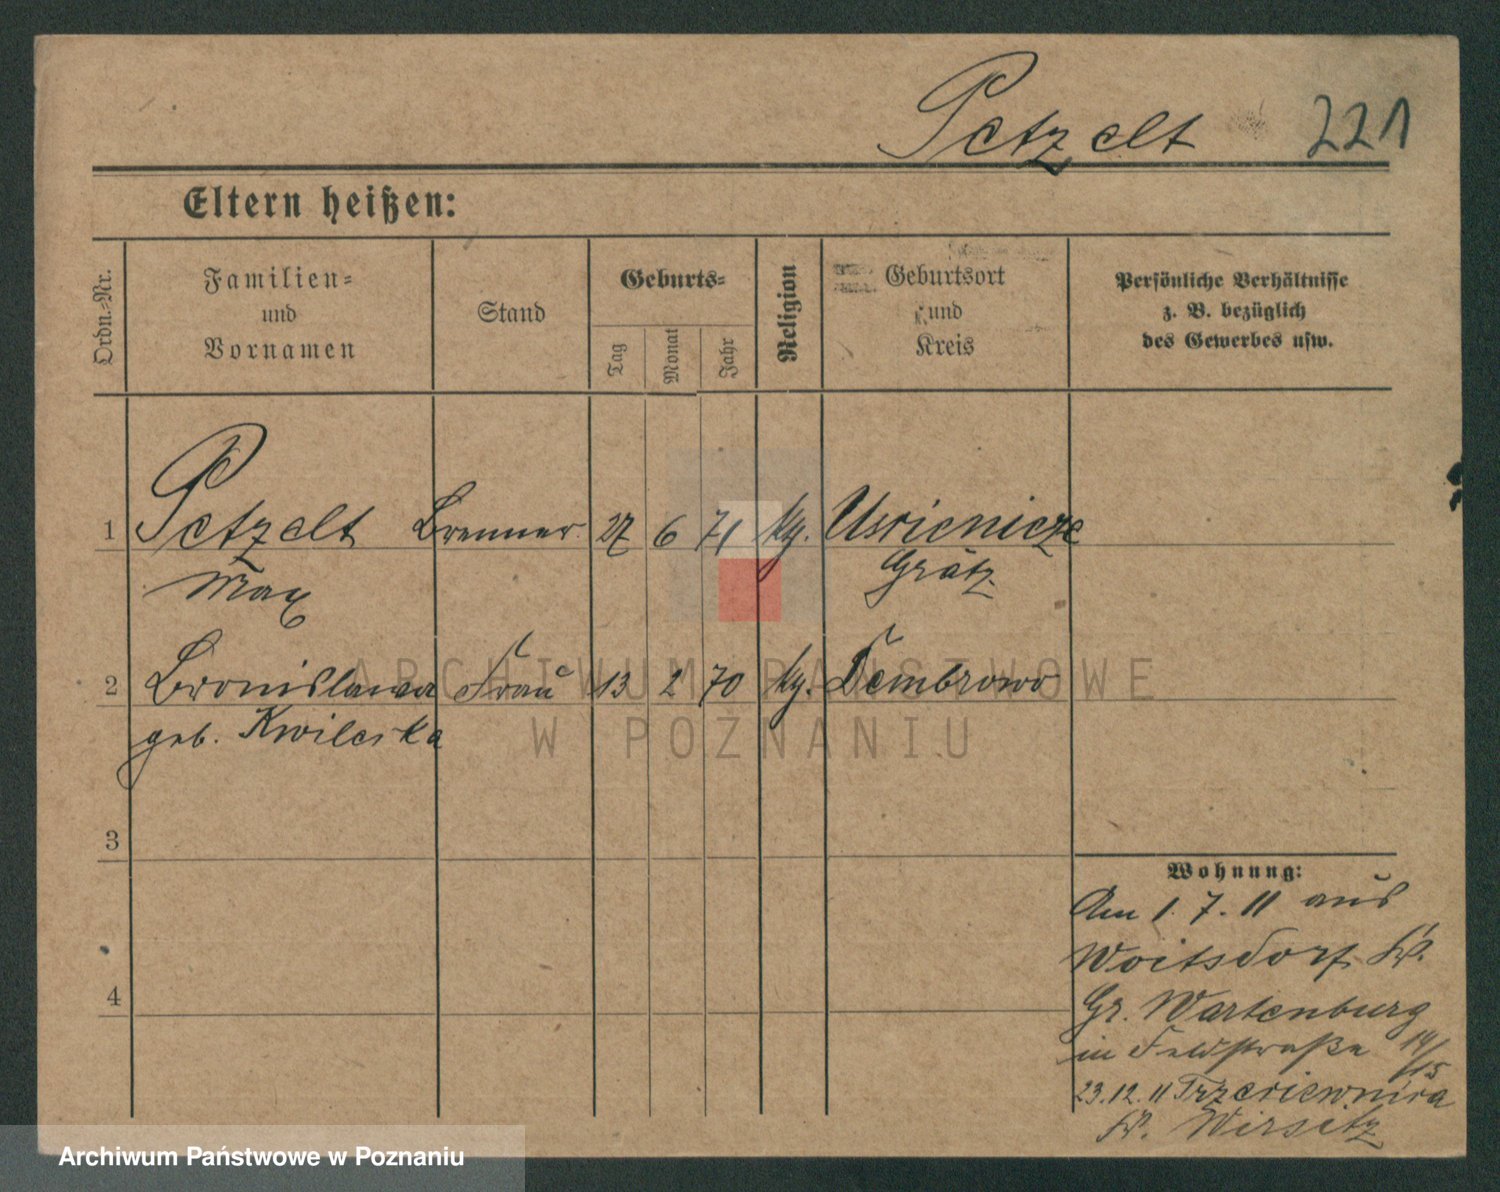 Petzelt 221
Eltern heißen:
Ordn.-Nr.
Familien-
und
Vornamen
Stand
Geburts-
Tag
Monat
Jahr
Religion
Geburtsort
und
Kreis
Persönliche Verhältnisse
z. B. bezüglich
des Gewerbes usw.
1 Petzelt Brenner 27 6 71 kg.
Max Grätz
2 Bronislawa Frau 13 2 70 kg. Dembrowo
geb. Kwilecka
3
4
Wohnung:
Am 1. 7. 11 aus
Woitsdorf Kr.
Gr. Wartenburg
in Feldstraße 14/15
23.12.11
Kr. Wirsitz
ARCHIWUM PAŃSTWOWE
W POZNANIU
Archiwum Państwowe w Poznaniu